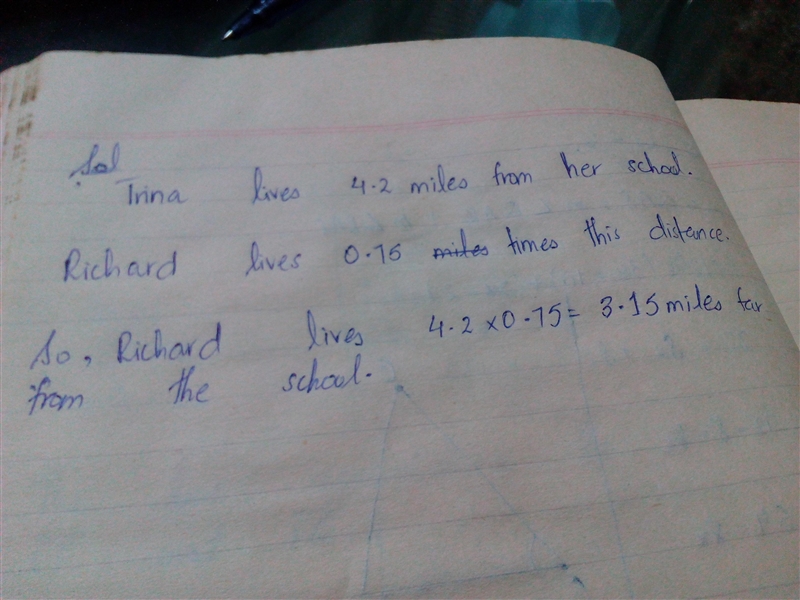 Sol
Trina lives 4.2 miles from her school.
Richard lives 0.75 miles times this distance.
So, Richard lives 4.2 x 0.75 = 3.15 miles far
from the school.